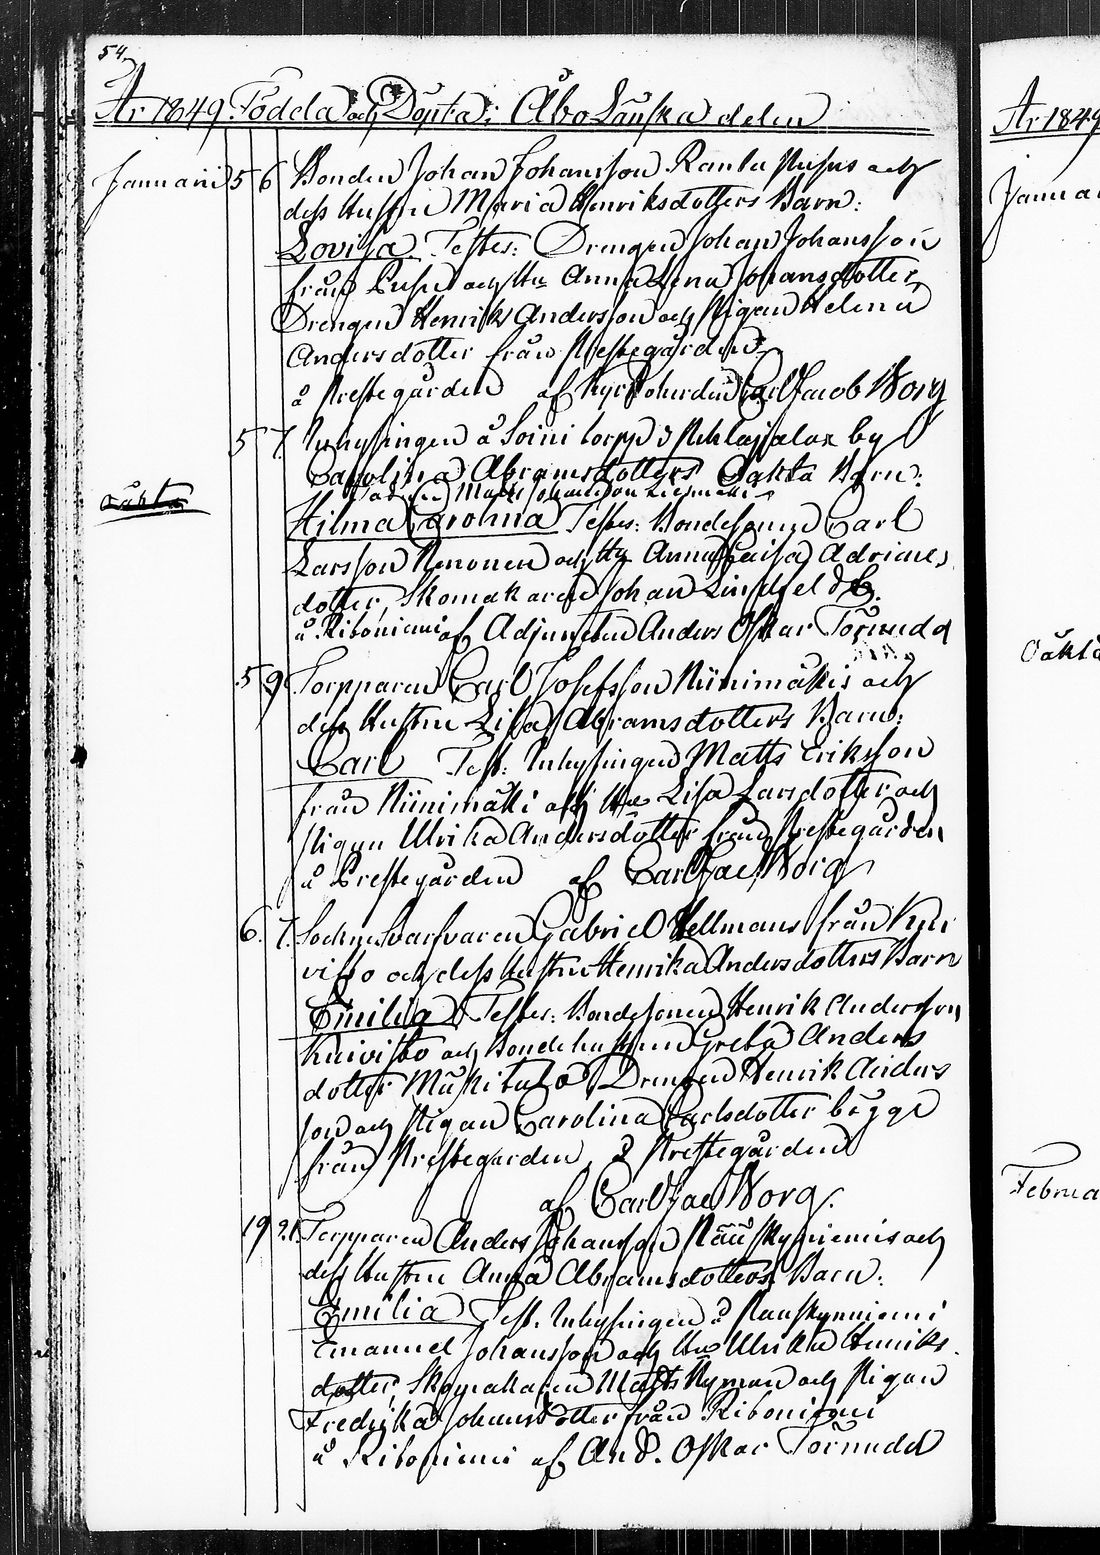 54.
År 1849. Födda och Döpta i Åbo Länska delen
Januarii 5 6 Bonden Johan Johansson Ranta och
dess Hustru Maria Henriksdotters Barn:
Lovisa Testes: Drengen Johan Johansson
från och Hu Anna Lena Johansdotter,
Drengen Henrik Andersson och Pigan Helena
Andersdotter från Prestegården
å Prestegården af Kyrkoherden Carl Jacob Borg
5 7. Inhysingen å Soini torpp i by
Carolina Abramsdotters Oäkta Barn:
Matts Johansson
oäkta Hilma Carolina Testes: Bondesonen Carl
Larsson och Hu Anna Caisa Adrians
dotter, Skomakaren Johan
å Riboniemi af Adjuncten Anders Oskar Törnudd
5 9 Torpparen Carl Josefsson Niinimäkis och
dess Hustru Lisa Abramsdotters Barn:
Carl Test: Inhysingen Matts Eriksson
från Niinimäki och Hu Lisa Larsdotter och
Pigan Ulrika Andersdotter från Prestegården
å Prestegården af Carl Jac Borg
6. 7. Sockne Svarfvaren Gabriel Hellmans från Kui
visto och dess Hustru Henrika Andersdotters Barn
Emilia Testes: Bondesonen Henrik Andersson
Kuivisto och Bondehustrun Greta Anders
dotter Mäkitalo Drengen Henrik Anders
son och Pigan Carolina Carlsdotter begge
från Prestegården å Prestegården
af Carl Jac Borg.
19 21. Torpparen Anders Johansson och
dess Hustru Anna Abramsdotters Barn:
Emilia Test. Inhysingen å
Emanuel Johansson och Hu Ulrika Henriks
dotter, Skomakaren Matts Nyman och Pigan
Fredrika Johansdotter från Riboniemi
å Riboniemi af And. Oskar Törnudd
År 1849
Janua
Oäkta
Februa